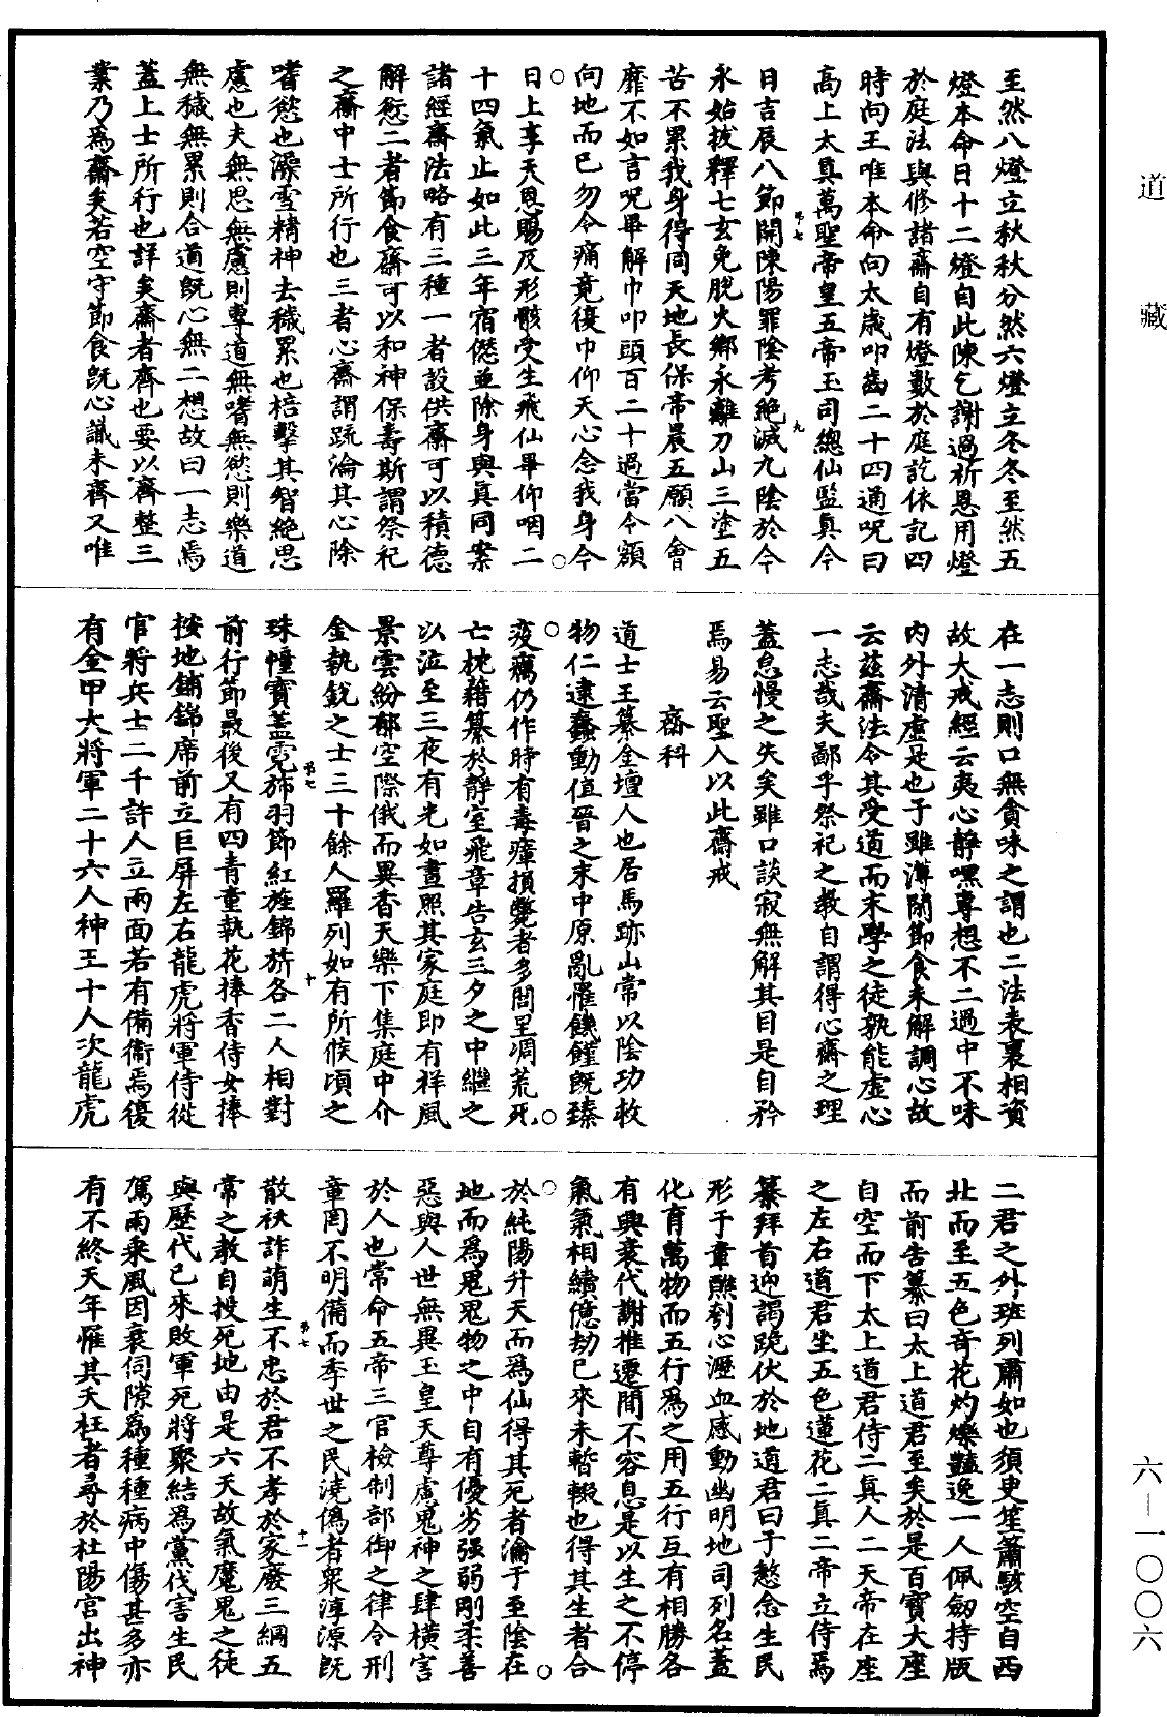 道藏
至然八燈立秋秋分然六燈立冬冬至然五
燈本命日十二燈自此陳乞謝過祈恩用燈
於庭法與修諸齋自有燈數於庭訖依記四
時向王唯本命向太歲叩齒二十四通呪曰
高上太真萬聖帝皇五帝玉司總仙監真今
日吉辰八節開陳陽罪陰考絕滅九陰於今
永始拔釋七玄免脫火鄉永離刀山三塗五
苦不累我身得同天地長保帝晨五願八會
靡不如言呪畢解巾叩頭百二十過當令額
向地而已勿令痛竟復巾仰天心念我身今
日上享天恩賜及形骸受生飛仙畢仰咽二
十四氣止如此三年宿僽並除身與真同案
諸經齋法略有三種一者設供齋可以積德
解愆二者節食齋可以和神保壽斯謂祭祀
之齋中士所行也三者心齋謂疏瀹其心除
嗜慾也澡雪精神去穢累也掊擊其智絕思
慮也夫無思無慮則專道無嗜無慾則樂道
無穢無累則合道既心無二想故曰一志焉
蓋上士所行也詳矣齋者齊也要以齊整三
業乃為齋矣若空守節食既心識未齊又唯
弟七 九
在一志則口無貪味之謂也二法表裏相資
故大戒經云夷心靜嘿專想不二過中不味
內外清虛是也予雖薄閑節食未解調心故
云茲齋法令其受道而末學之徒孰能虛心
一志哉夫鄙乎祭祀之教自謂得心齋之理
蓋怠慢之失矣雖口談寂無解其目是自矜
焉易云聖人以此齋戒
齋科
道士王纂金壇人也居馬跡山常以陰功救
物仁逮蠢動值晉之末中原亂罹饑饉既臻
疫癘仍作時有毒瘴損斃者多閭里凋荒死
亡枕藉纂於靜室飛章告玄三夕之中繼之
以泣至三夜有光如晝照其家庭即有祥風
景雲紛郁空際俄而異香天樂下集庭中介
金執銳之士三十餘人羅列如有所候頃之
珠幢寶蓋霓斾羽節紅旌錦旂各二人相對
前行節最後又有四青童執花捧香侍女捧
按地鋪錦席前立巨屏左右龍虎將軍侍從
官將兵士二千許人立兩面若有備衛焉復
有金甲大將軍二十六人神王十人次龍虎
弟七 十
二君之外班列肅如也須臾笙簫駭空自西
北而至五色奇花灼爍豔逸一人佩劍持版
而前告纂曰太上道君至矣於是百寶大座
自空而下太上道君侍二真人二天帝在座
之左右道君坐五色蓮花二真二帝立侍焉
纂拜首迎謁跪伏於地道君曰子愍念生民
形于章醮刳心瀝血感動幽明地司列名蓋
化育萬物而五行為之用五行互有相勝各
有興衰代謝推遷間不容息是以生之不停
氣氣相續億劫已來未暫輟也得其生者合
於純陽升天而為仙得其死者淪于至陰在
地而為鬼鬼物之中自有優劣強弱剛柔善
惡與人世無異玉皇天尊慮鬼神之肆橫害
於人也常命五帝三官檢制部御之律令刑
章罔不明備而季世之民澆偽者衆淳源既
散祅詐萌生不忠於君不孝於家廢三綱五
常之教自投死地由是六天故氣魔鬼之徒
與歷代已來敗軍死將聚結為黨伐害生民
駕雨乘風因衰伺隙為種種病中傷甚多亦
有不終天年罹其夭枉者尋於杜陽宮出神
弟七 十一
六－一〇〇六